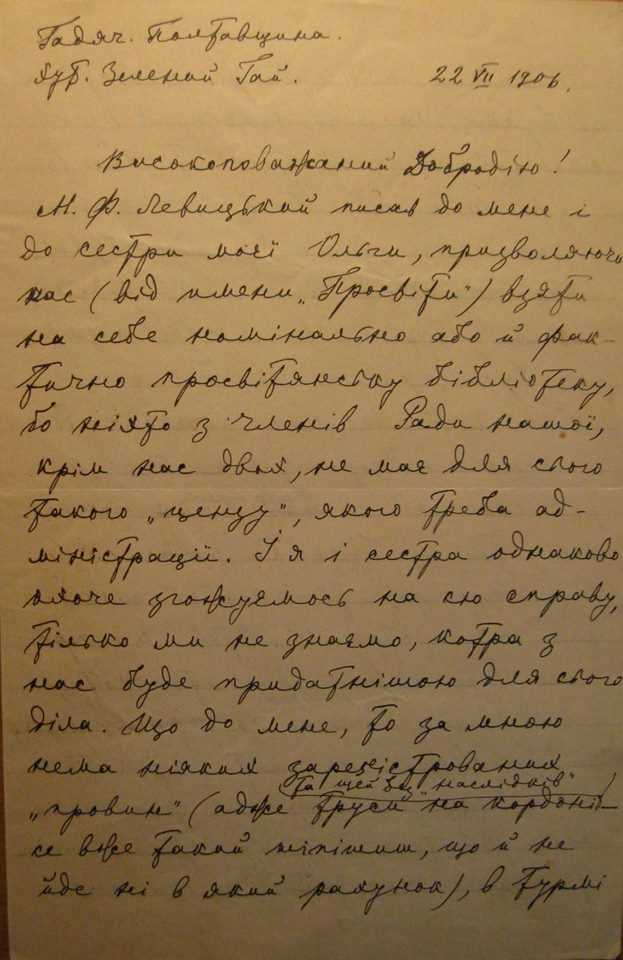 Гадяч. Полтавщина.
Хут. Зелений Гай. 22 VII 1906.
Високоповажаний Добродію!
М. Ф. Левицький писав до мене і
до сестри моєї Ольги, призволяючи
нас (від имени „Просвіти") взяти
на себе номінально або й фак-
тично просвітянську бібліотеку,
бо ніхто з членів Ради нашої,
крім нас двох, не має для сього
такого „цензу", якого треба ад-
міністрації. І я і сестра однаково
охоче згожуємось на сю справу,
тілько ми не знаємо, котра з
нас буде придатнішою для сього
діла. Що до мене, то за мною
нема ніяких зареєстрованих
та ще й без „наслідків"
„провин" (адже труси на кордоні –
се вже такий мінімум, що й не
йде ні в який рахунок), в турмі